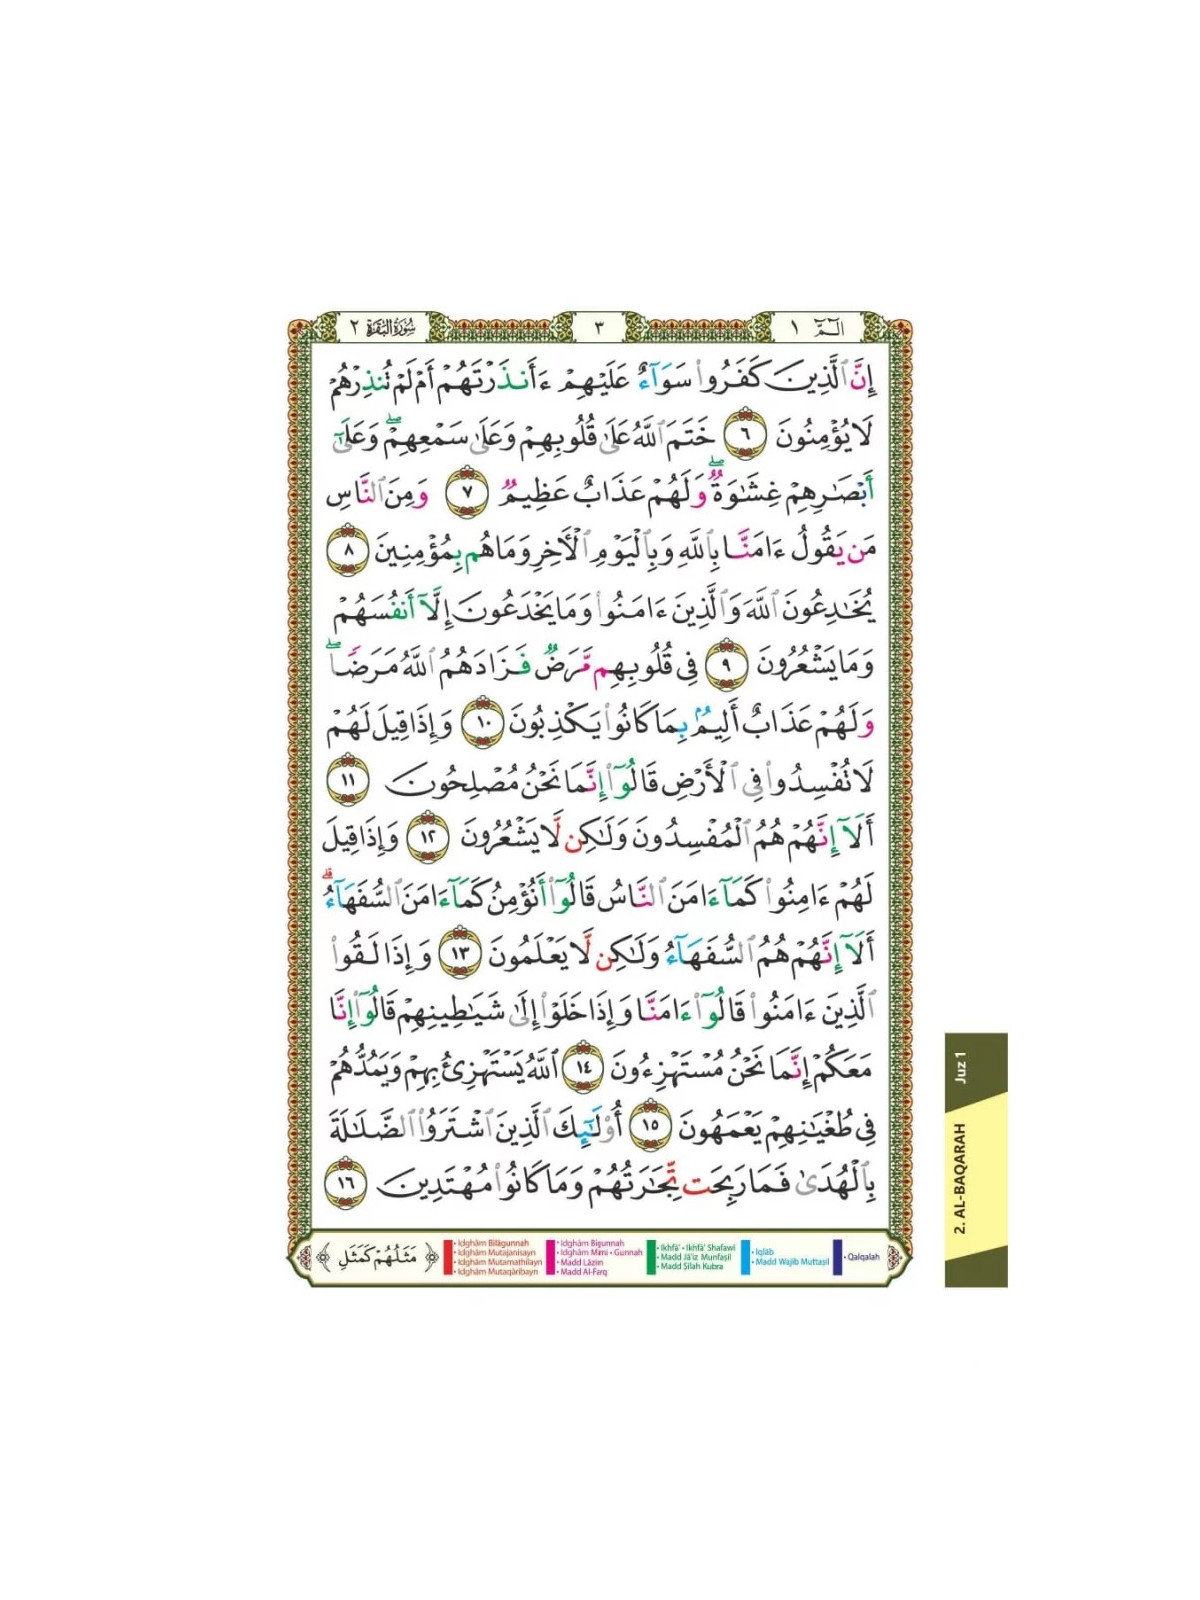 الٓمّٓ ١
٣
سُورَةُ البَقَرَة ٢
إِنَّ ٱلَّذِينَ كَفَرُوا۟ سَوَآءٌ عَلَيْهِمْ ءَأَنذَرْتَهُمْ أَمْ لَمْ تُنذِرْهُمْ
لَا يُؤْمِنُونَ ٦ خَتَمَ ٱللَّهُ عَلَىٰ قُلُوبِهِمْ وَعَلَىٰ سَمْعِهِمْ ۖ وَعَلَىٰٓ
أَبْصَـٰرِهِمْ غِشَـٰوَةٌ ۖ وَلَهُمْ عَذَابٌ عَظِيمٌ ٧ وَمِنَ ٱلنَّاسِ
مَن يَقُولُ ءَامَنَّا بِٱللَّهِ وَبِٱلْيَوْمِ ٱلْأَخِرِ وَمَا هُم بِمُؤْمِنِينَ ٨
يُخَـٰدِعُونَ ٱللَّهَ وَٱلَّذِينَ ءَامَنُوا۟ وَمَا يَخْدَعُونَ إِلَّآ أَنفُسَهُمْ
وَمَا يَشْعُرُونَ ٩ فِى قُلُوبِهِم مَّرَضٌ فَزَادَهُمُ ٱللَّهُ مَرَضًا ۖ
وَلَهُمْ عَذَابٌ أَلِيمٌۢ بِمَا كَانُوا۟ يَكْذِبُونَ ١٠ وَإِذَا قِيلَ لَهُمْ
لَا تُفْسِدُوا۟ فِى ٱلْأَرْضِ قَالُوٓا۟ إِنَّمَا نَحْنُ مُصْلِحُونَ ١١
أَلَآ إِنَّهُمْ هُمُ ٱلْمُفْسِدُونَ وَلَـٰكِن لَّا يَشْعُرُونَ ١٢ وَإِذَا قِيلَ
لَهُمْ ءَامِنُوا۟ كَمَآ ءَامَنَ ٱلنَّاسُ قَالُوٓا۟ أَنُؤْمِنُ كَمَآ ءَامَنَ ٱلسُّفَهَآءُ ۗ
أَلَآ إِنَّهُمْ هُمُ ٱلسُّفَهَآءُ وَلَـٰكِن لَّا يَعْلَمُونَ ١٣ وَإِذَا لَقُوا۟
ٱلَّذِينَ ءَامَنُوا۟ قَالُوٓا۟ ءَامَنَّا وَإِذَا خَلَوْا۟ إِلَىٰ شَيَـٰطِينِهِمْ قَالُوٓا۟ إِنَّا
مَعَكُمْ إِنَّمَا نَحْنُ مُسْتَهْزِءُونَ ١٤ ٱللَّهُ يَسْتَهْزِئُ بِهِمْ وَيَمُدُّهُمْ
فِى طُغْيَـٰنِهِمْ يَعْمَهُونَ ١٥ أُو۟لَـٰٓئِكَ ٱلَّذِينَ ٱشْتَرَوُا۟ ٱلضَّلَـٰلَةَ
بِٱلْهُدَىٰ فَمَا رَبِحَت تِّجَـٰرَتُهُمْ وَمَا كَانُوا۟ مُهْتَدِينَ ١٦
مَثَلُهُمْ كَمَثَلِ
• Idghām Bilāgunnah
• Idghām Mutajānisayn
• Idghām Mutamathilayn
• Idghām Mutaqāribayn
• Idghām Bigunnah
• Idghām Mimi • Gunnah
• Madd Lāzim
• Madd Al-Farq
• Ikhfā' • Ikhfā' Shafawī
• Madd Jā'iz Munfaṣil
• Madd Ṣilah Kubra
• Iqlāb
• Madd Wajib Muttaṣil
• Qalqalah
Juz 1
2. AL-BAQARAH